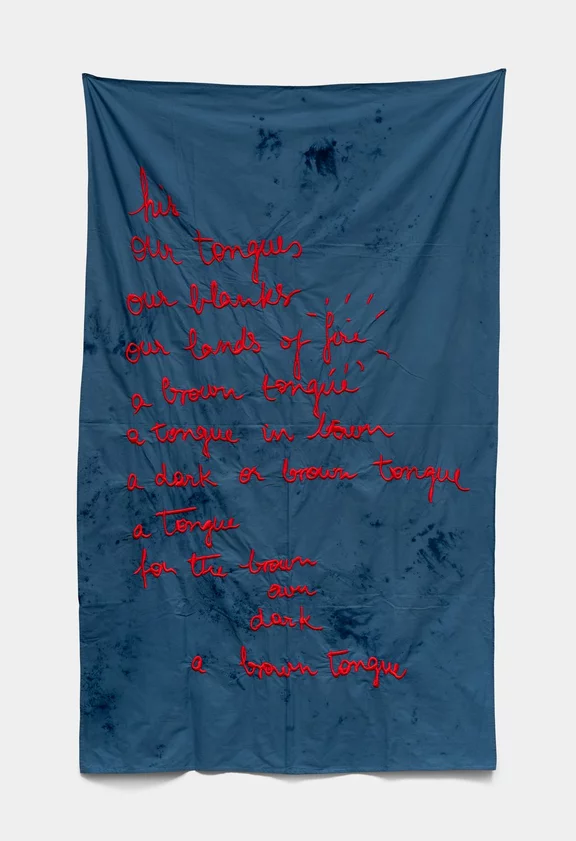 his
our tongues
our blanks
our lands of fire
a brown tongue
a tongue in brown
a dark or brown tongue
a tongue
for the brown
own
dark
a brown tongue